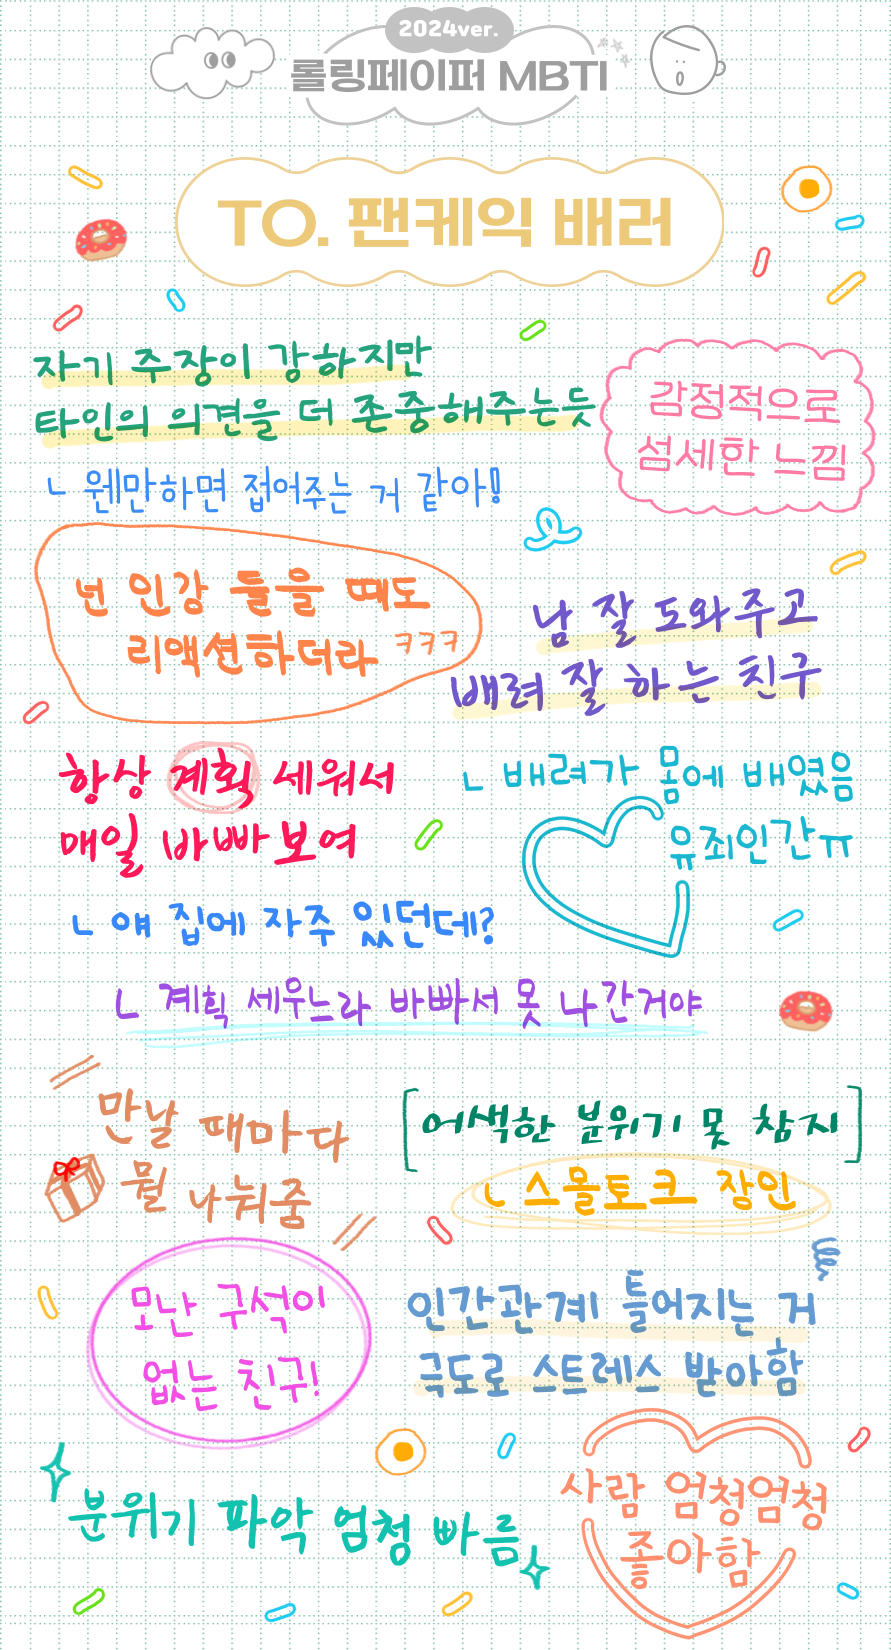 2024ver.
롤링페이퍼 MBTI
TO. 팬케익 배러
자기 주장이 강하지만
타인의 의견을 더 존중해주는듯
ㄴ 웬만하면 접어주는 거 같아!
감정적으로
섬세한 느낌
넌 인강 들을 때도
리액션하더라 ㅋㅋㅋ
남 잘 도와주고
배려 잘 하는 친구
ㄴ 배려가 몸에 배였음
유죄인간ㅠ
항상 계획 세워서
매일 바빠보여
ㄴ 얘 집에 자주 있던데?
ㄴ 계획 세우느라 바빠서 못 나간거야
만날 때마다
뭘 나눠줌
[어색한 분위기 못 참지]
ㄴ 스몰토크 장인
모난 구석이
없는 친구!
인간관계 틀어지는 거
극도로 스트레스 받아함
분위기 파악 엄청 빠름
사람 엄청엄청
좋아함